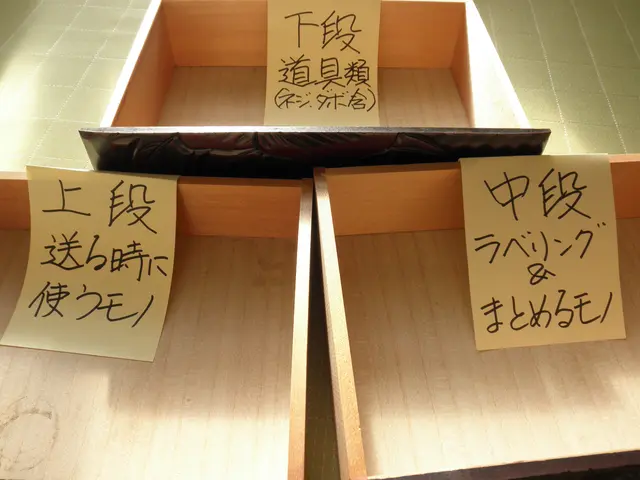 下段
道具類
(ネジ、ダボ含)
上段
送る時に
使うモノ
中段
ラベリング
&
まとめるモノ